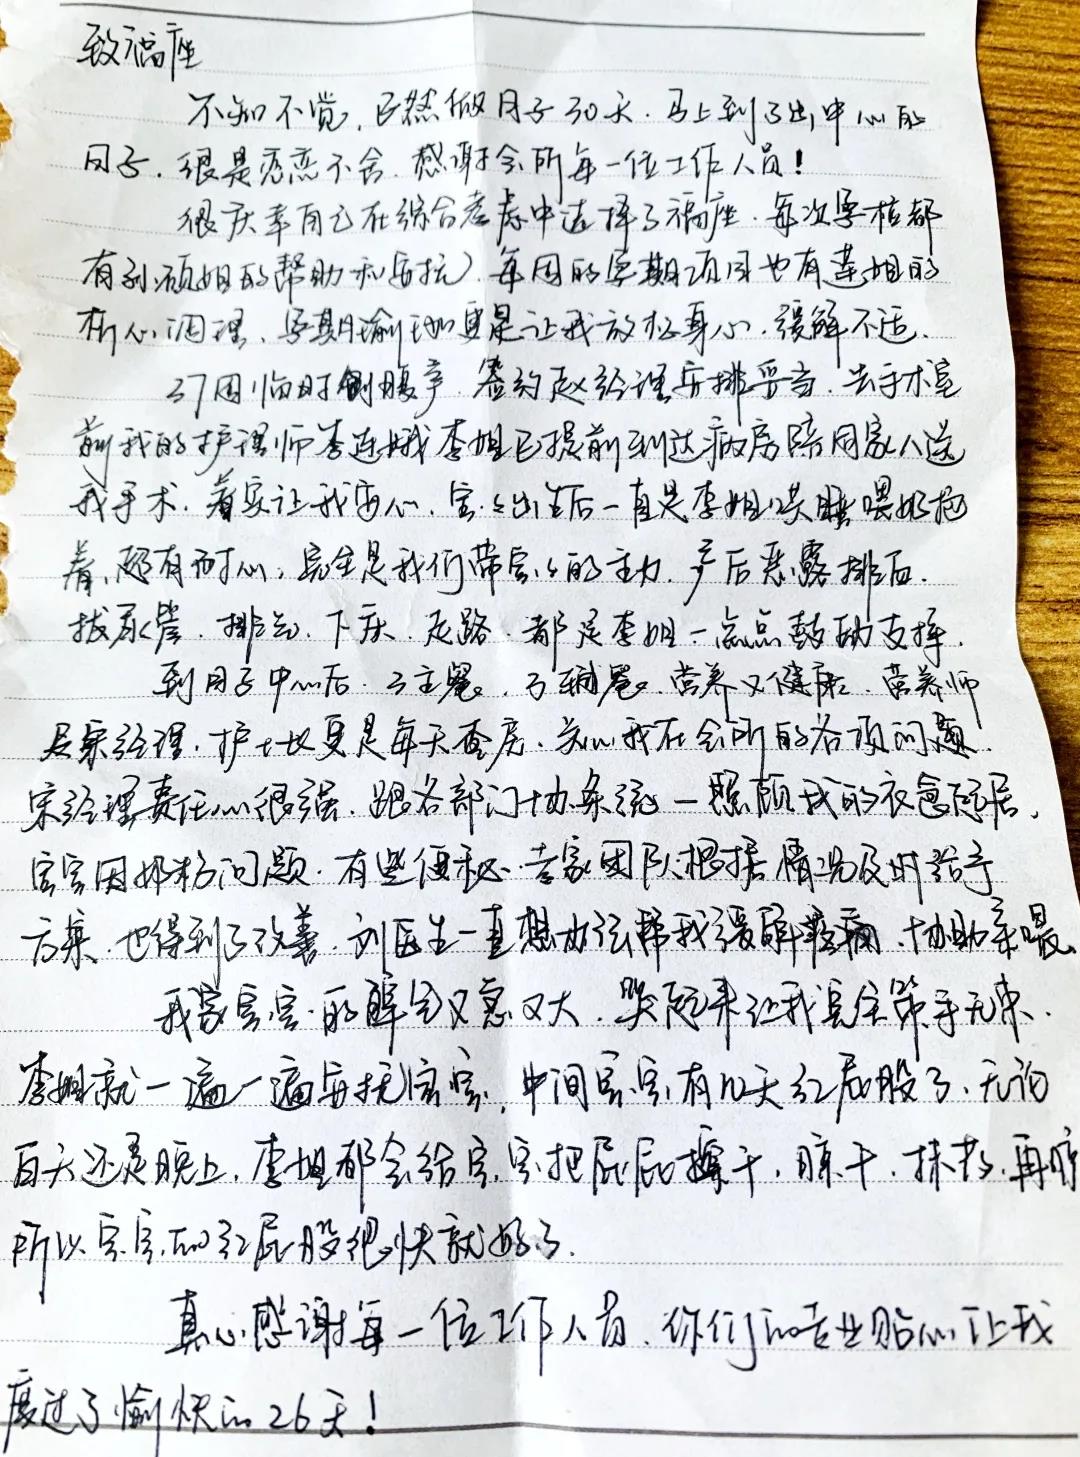 致福座
不知不觉，已然做月子30天．马上到了出中心的
日子．很是恋恋不舍．感谢会所每一位工作人员！
很庆幸自己在综合考虑中选择了福座．每次孕检都
有刘颀姐的帮助和安抚，每周的孕期项目也有莲姐的
析心调理，孕期瑜珈更是让我放松身心，缓解不适．
37周临时剖腹产．签约赵经理安排妥当．去手术室
前我的护理师李连娥李姐已提前到达病房陪同家人送
我手术．着实让我安心．宝宝出生后一直是李姐哄睡喂奶抱
着，超有耐心，完全是我们带宝宝的主力．产后恶露排血．
拔尿管．排气．下床．走路．都是李姐一点点鼓励支撑．
到月子中心后．三主餐，三辅餐．营养又健康．营养师
及宋经理．护士长更是每天查房．关心我在会所的各项问题．
宋经理责任心很强．跟各部门协条统一照顾我的衣食起居，
宝宝因奶粉问题．有些便秘．专家团队根据情况及时给予
方案．也得到了改善．刘医生一直想办法帮我缓解疼痛．协助亲喂．
我家宝宝的解便又急又大．哭起来让我完全策手无束．
李姐就一遍一遍安抚宝宝，中间宝宝有几天红屁股了．无论
白天还是晚上．李姐都会给宝宝把屁屁擦干，晾干．抹药．再晾
所以宝宝的红屁股很快就好了．
真心感谢每一位工作人员．你们的专业贴心让我
度过了愉快的26天！